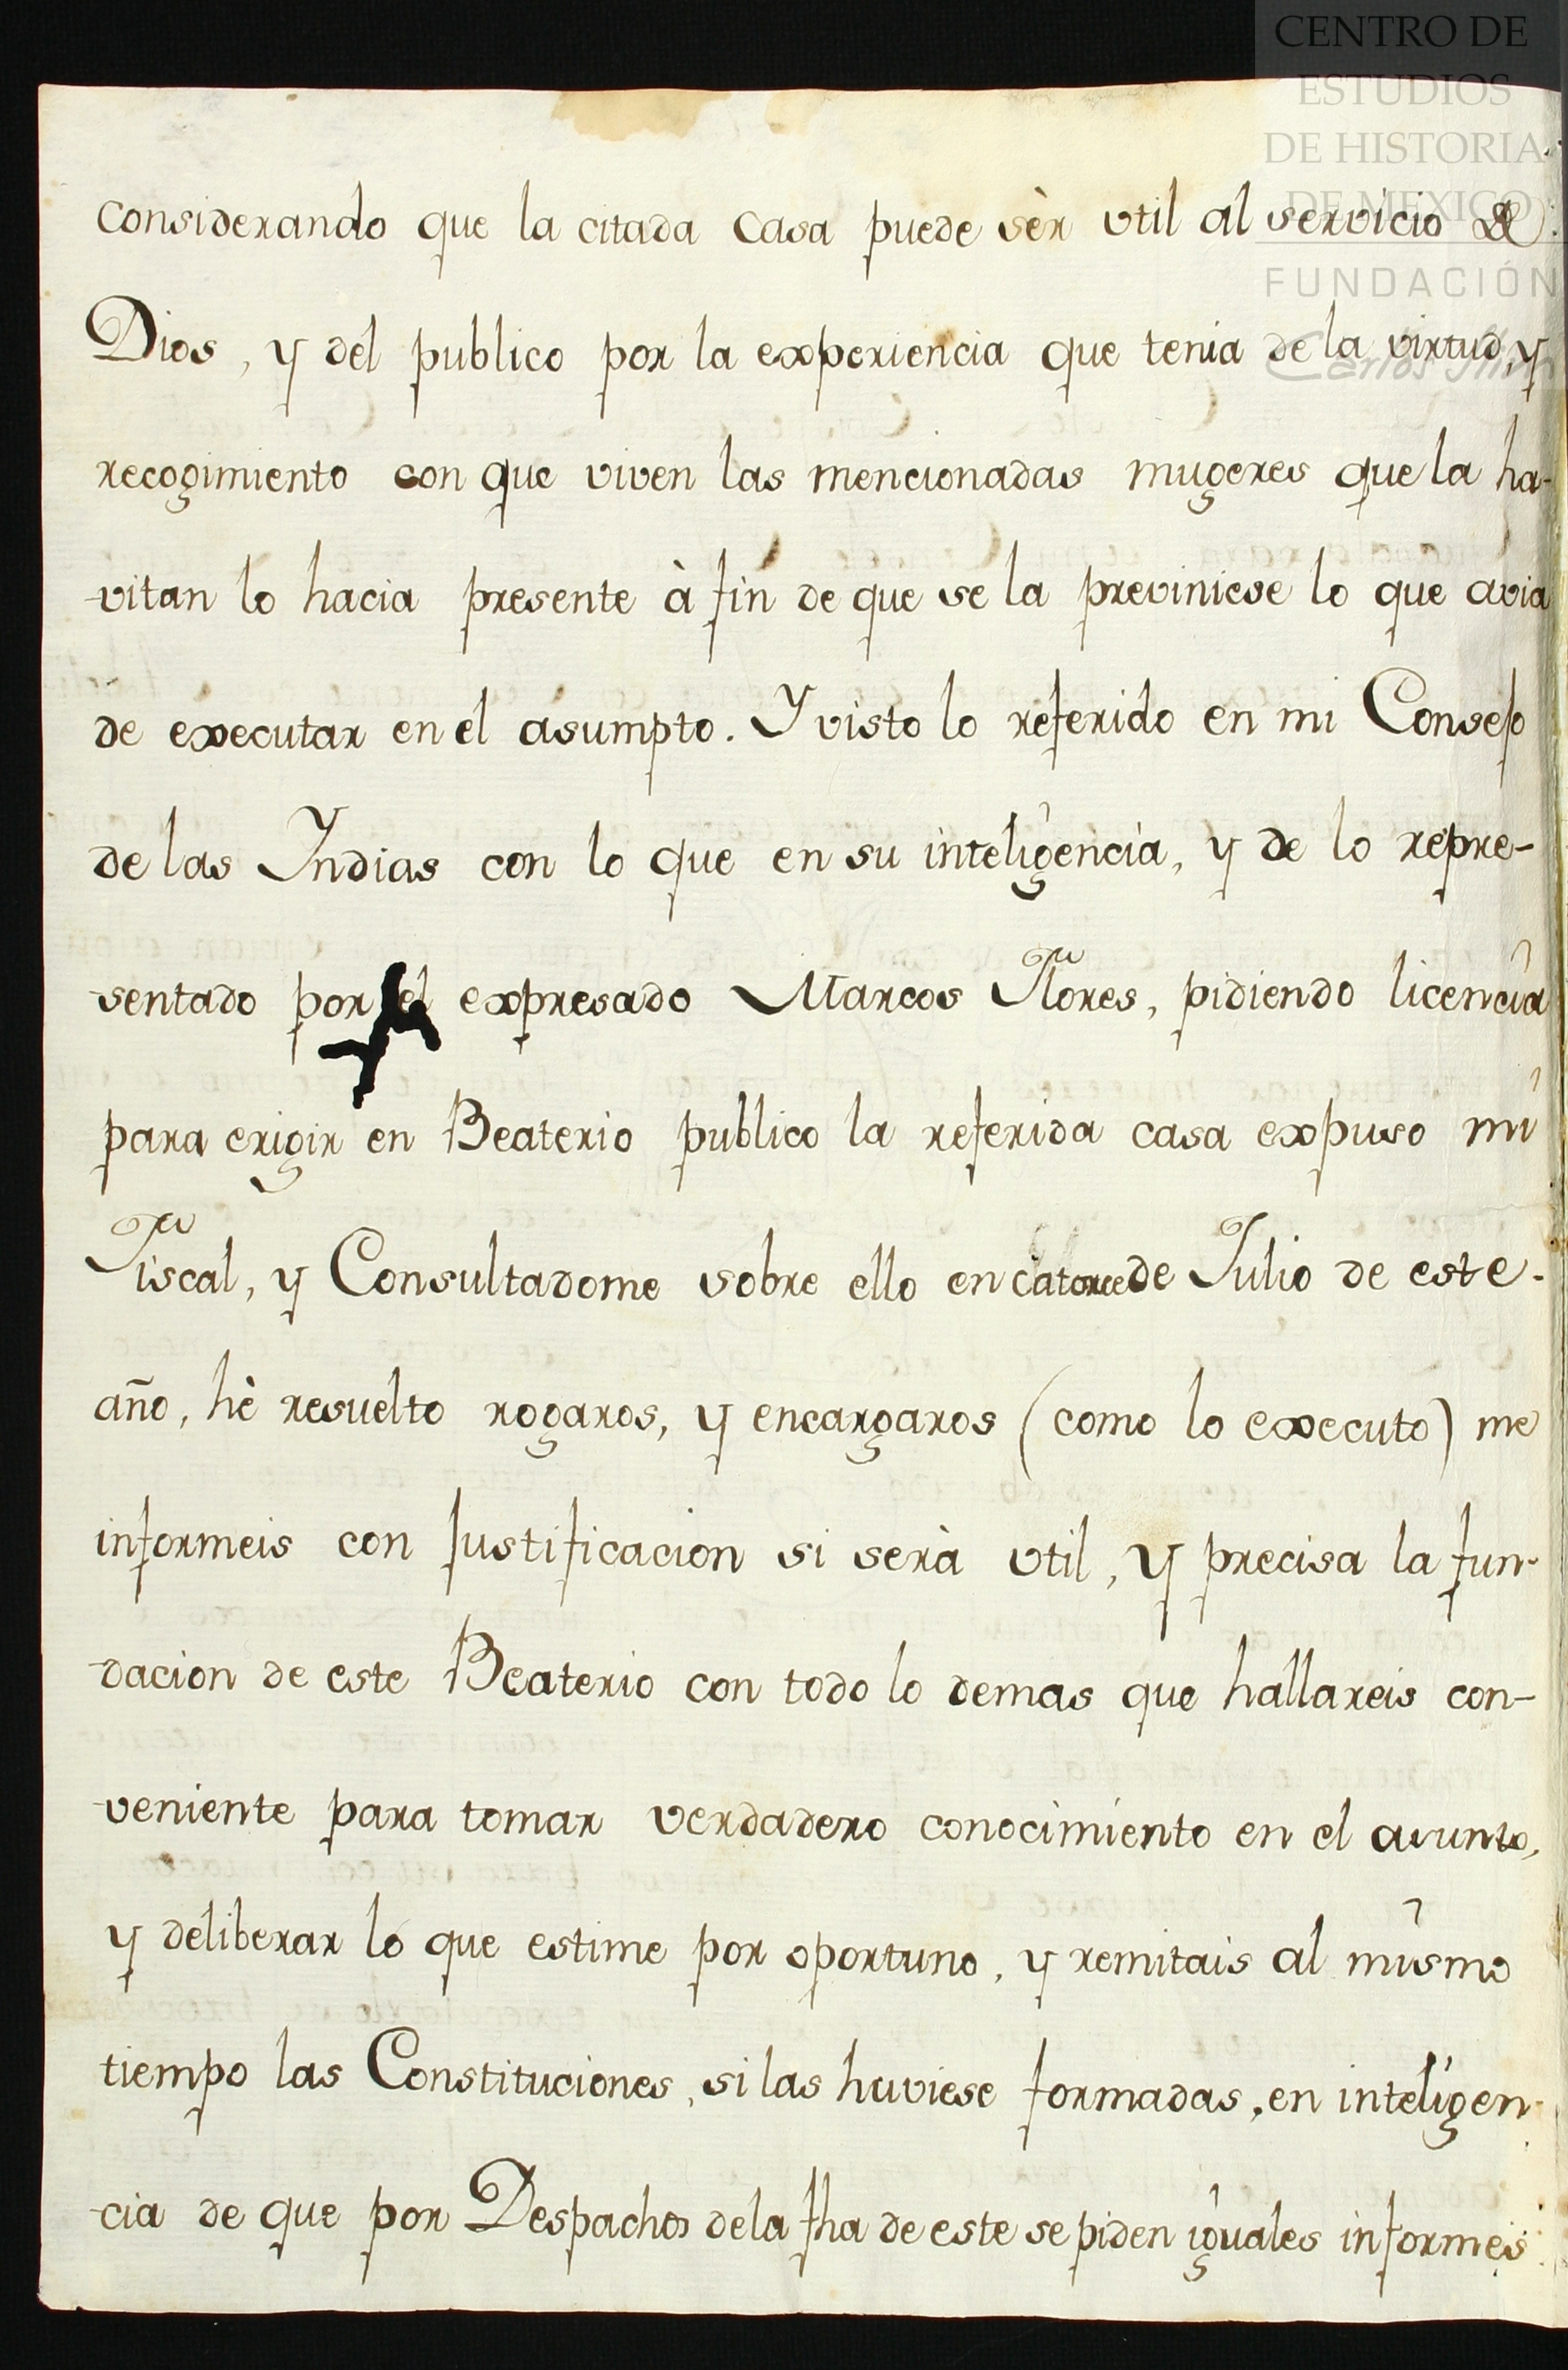 CENTRO DE
ESTUDIOS
DE HISTORIA
DE MEXICO
FUNDACIÓN
Carlos Slim
considerando que la citada casa puede sèr vtil al servicio de
Dios, y del publico por la experiencia que tenia de la virtud, y
recogimiento con que viven las mencionadas mugeres que la ha-
vitan lo hacia presente à fin de que se la previniese lo que avia
de executar en el asumpto. Y visto lo referido en mi Consejo
de las Indias con lo que en su inteligencia, y de lo repre-
sentado por el expresado Marcos Flores, pidiendo licencia
para erigir en Beaterio publico la referida casa expuso mi
Fiscal, y Consultadome sobre ello en catorce de Julio de este
año, hè resuelto rogaros, y encargaros (como lo executo) me
informeis con Justificacion si serà vtil, y precisa la fun-
dacion de este Beaterio con todo lo demas que hallareis con-
veniente para tomar verdadero conocimiento en el asunto,
y deliberar lo que estime por oportuno, y remitais al mismo
tiempo las Constituciones, si las huviese formadas, en inteligen-
cia de que por Despachos de la fha de este se piden iguales informes